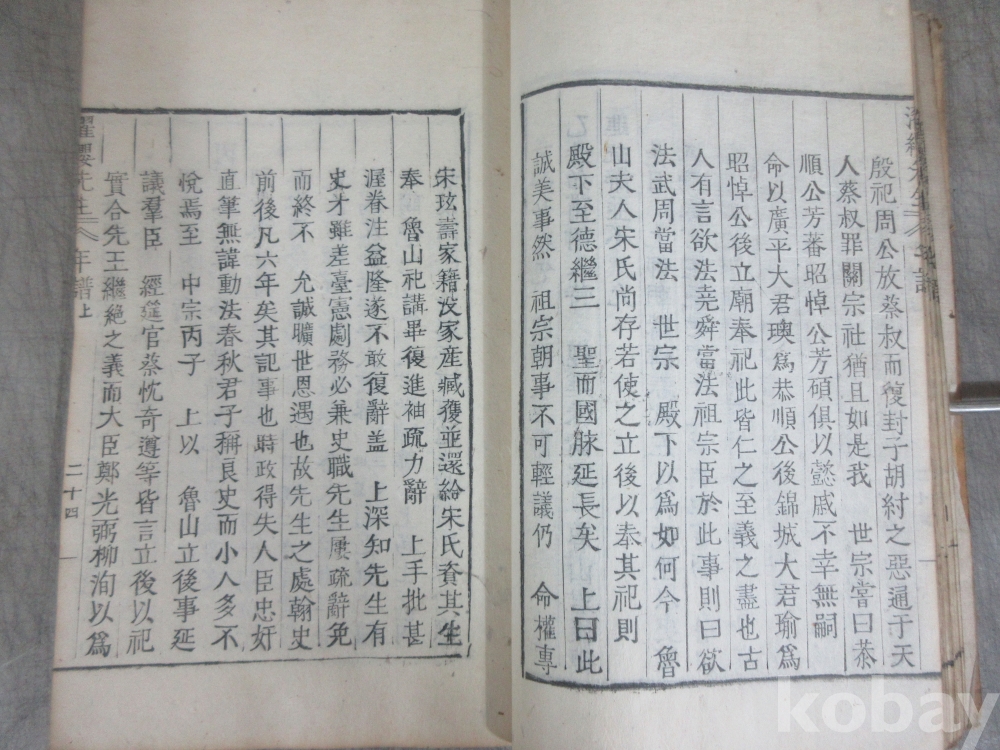 殷祀周公放蔡叔而復封子胡紂之惡通于天
人蔡叔罪關宗社猶且如是我 世宗嘗曰恭
順公芳蕃昭悼公芳碩俱以懿戚不幸無嗣
命以廣平大君璵爲恭順公後錦城大君瑜爲
昭悼公後立廟奉祀此皆仁之至義之盡也古
人有言欲法堯舜當法祖宗臣於此事則曰欲
法武周當法 世宗 殿下以爲如何今 魯
山夫人宋氏尚存若使之立後以奉其祀則
殿下至德繼三 聖而國脉延長矣 上曰此
誠美事然 祖宗朝事不可輕議仍 命權專
宋玹壽家籍沒家産臧獲並還給宋氏資其生
奉 魯山祀講畢復進袖疏力辭 上手批甚
渥眷注益隆遂不敢復辭盖 上深知先生有
史才雖差臺憲劇務必兼史職先生屢疏辭免
而終不 允誠曠世恩遇也故先生之處翰史
前後凡六年矣其記事也時政得失人臣忠奸
直筆無諱動法春秋君子稱良史而小人多不
悅焉至 中宗丙子 上以 魯山立後事延
議羣臣 經筵官蔡忱奇遵等皆言立後以祀
實合先王繼絶之義而大臣鄭光弼柳洵以爲
先生
年譜上
二十四
kobay